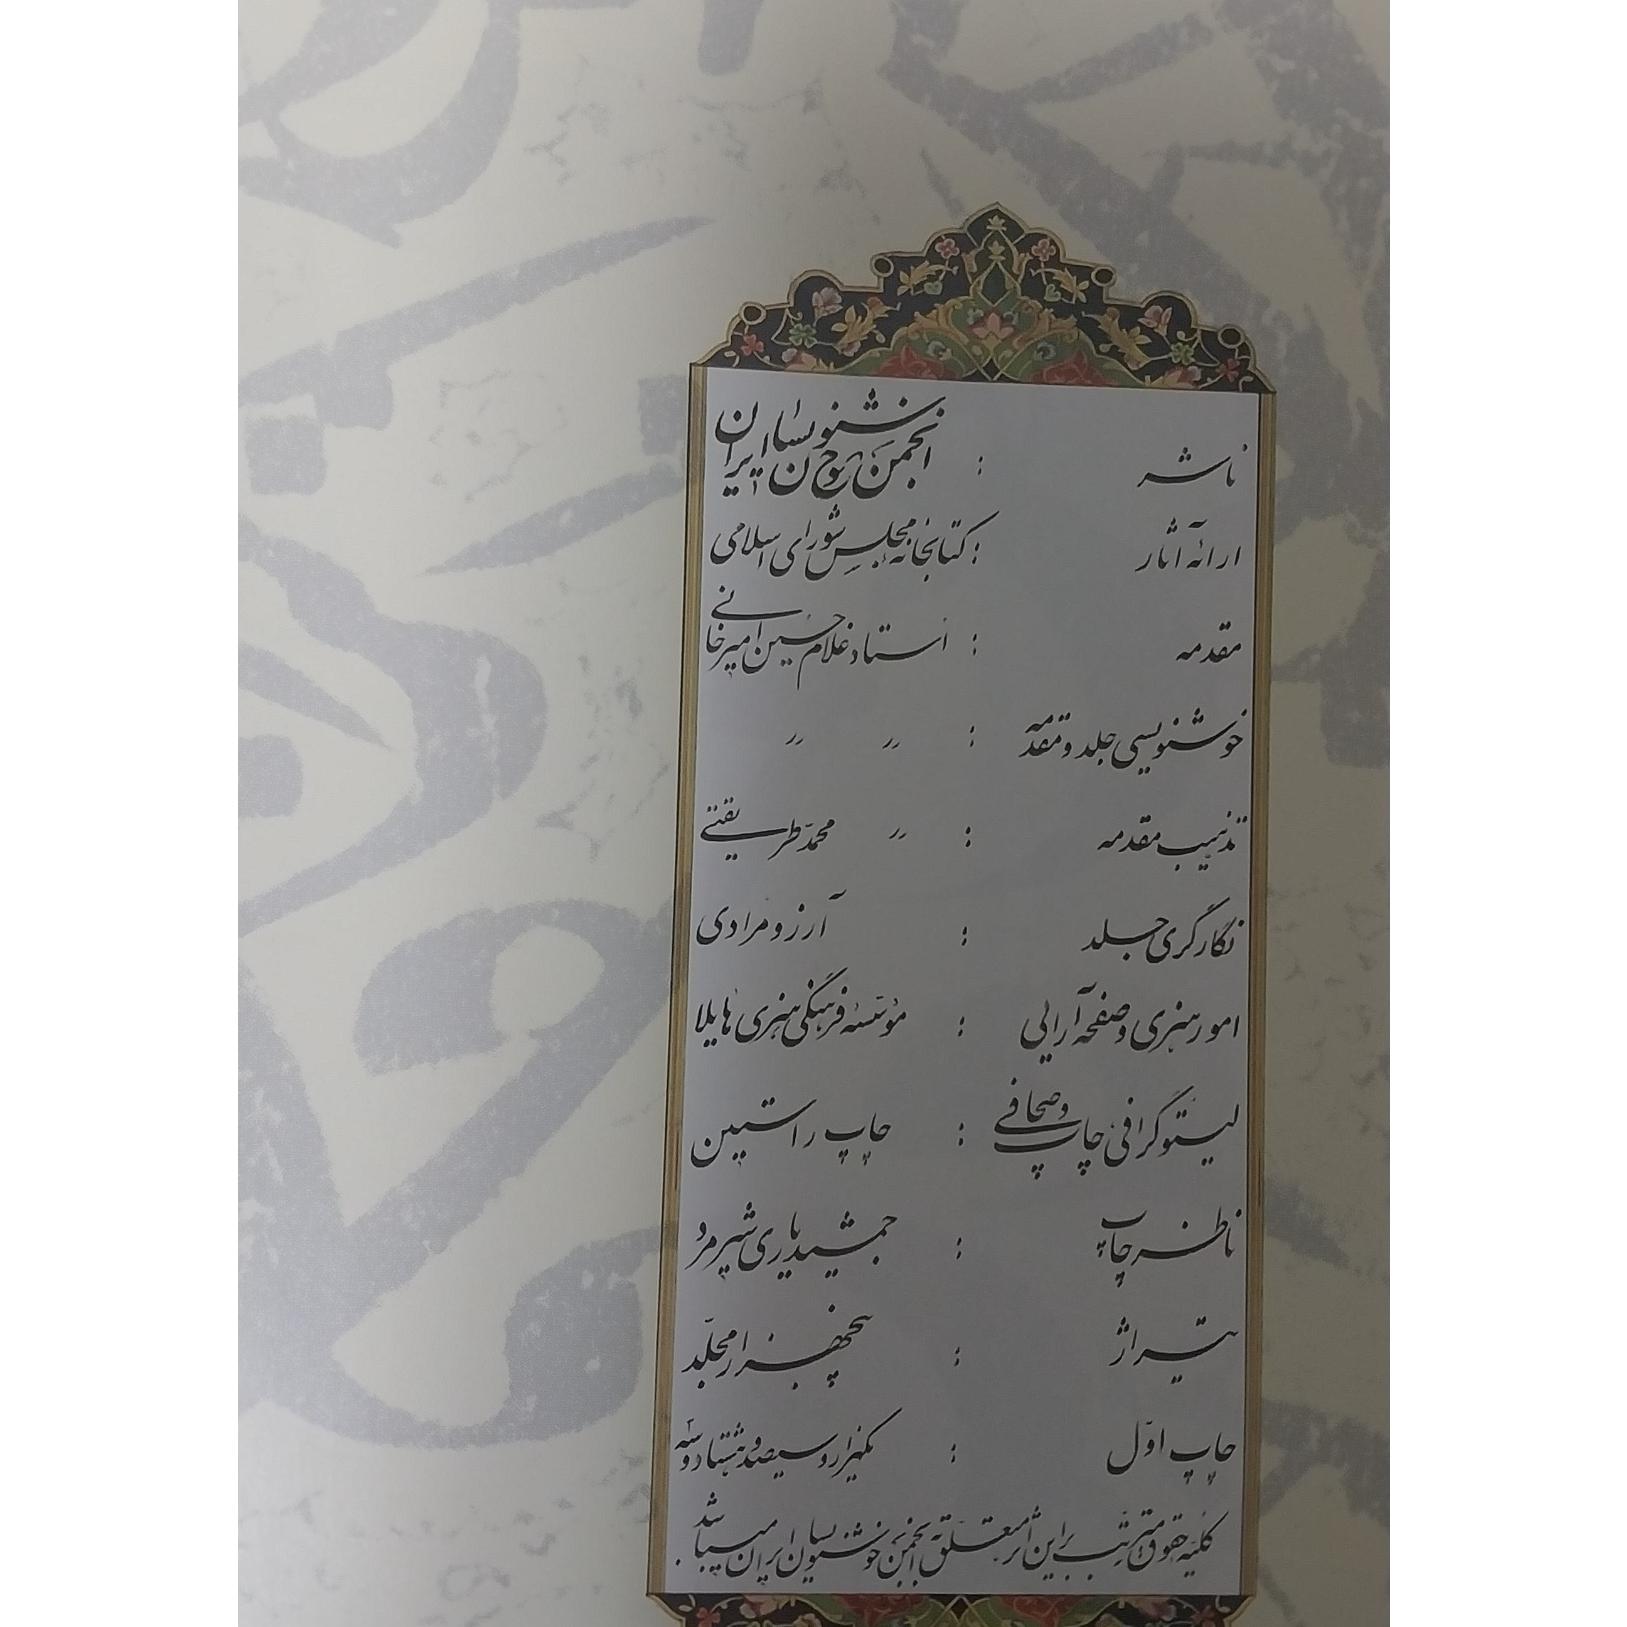 ناشر : انجمن خوشنویسان ایران
ارائه آثار : کتابخانه مجلس شورای اسلامی
مقدمه : استاد غلامحسین امیرخانی
خوشنویسی جلد و مقدمه : 〃 〃
تذهیب مقدمه : 〃 محمد طریقتی
نگارگری جلد : آرزو مرادی
امور هنری و صفحه آرایی : مؤسسه فرهنگی هنری هایلا
لیتوگرافی چاپ و صحافی : چاپ راستین
ناظر چاپ : جمشید یاری شیرمرد
تیراژ : پنجهزار مجلّد
چاپ اوّل : یکهزار و سیصد و هشتاد و سه
کلیّه حقوق مترتب بر این اثر متعلق به انجمن خوشنویسان ایران میباشد .